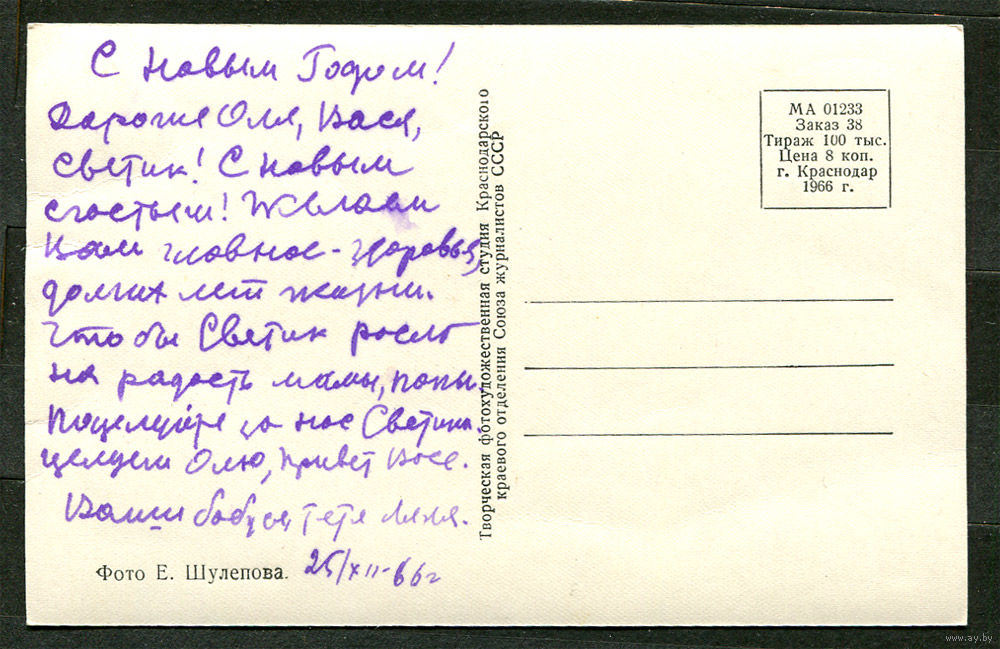 С Новым Годом!
Дорогие Оля, Вася,
Светик! С новым
счастьем! Желаем
Вам главное - здоровья,
долгих лет жизни.
Что бы Светик росло
на радость мамы, папы.
Поцелуйте за нас Светика
целуем Олю, привет Васе.
Ваши бабуся, тетя Ляля.
25/XII-66 г
Фото Е. Шулепова.
Творческая фотохудожественная студия Краснодарского
краевого отделения Союза журналистов СССР
МА 01233
Заказ 38
Тираж 100 тыс.
Цена 8 коп.
г. Краснодар
1966 г.
www.ay.by